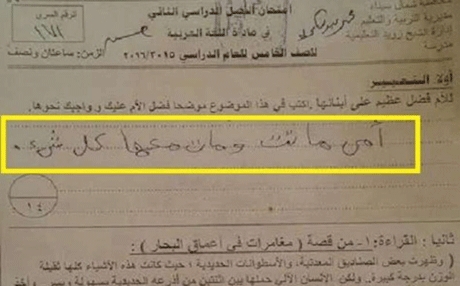 امتحان الفصل الدراسي الثاني
فى مادة اللغة العربية
للصف الخامس للعام الدراسى ٢٠١٦/٢٠١٥ الزمن: ساعتان ونصف
محافظة شمال سيناء
مديرية التربية والتعليم
إدارة الشيخ زويد التعليمية
مدرسة
الرقم السرى
أولا: التعبير
للأم فضل عظيم على أبنائها. اكتب في هذا الموضوع موضحا فضل الأم عليك وواجبك نحوها.
أمى ماتت ومات معها كل شىء .
١٤
ثانيا : القراءة: ١- من قصة ( مغامرات فى أعماق البحار ) :
( وظهرت بعض الصناديق المعدنية، والأسطوانات الحديدية ؛ حيث كانت هذه الأشياء كلها ثقيلة
الوزن بدرجة كبيرة.. ولكن الإنسان الآلي حملها بين اثنتين من أذرعه الحديدية بسهولة